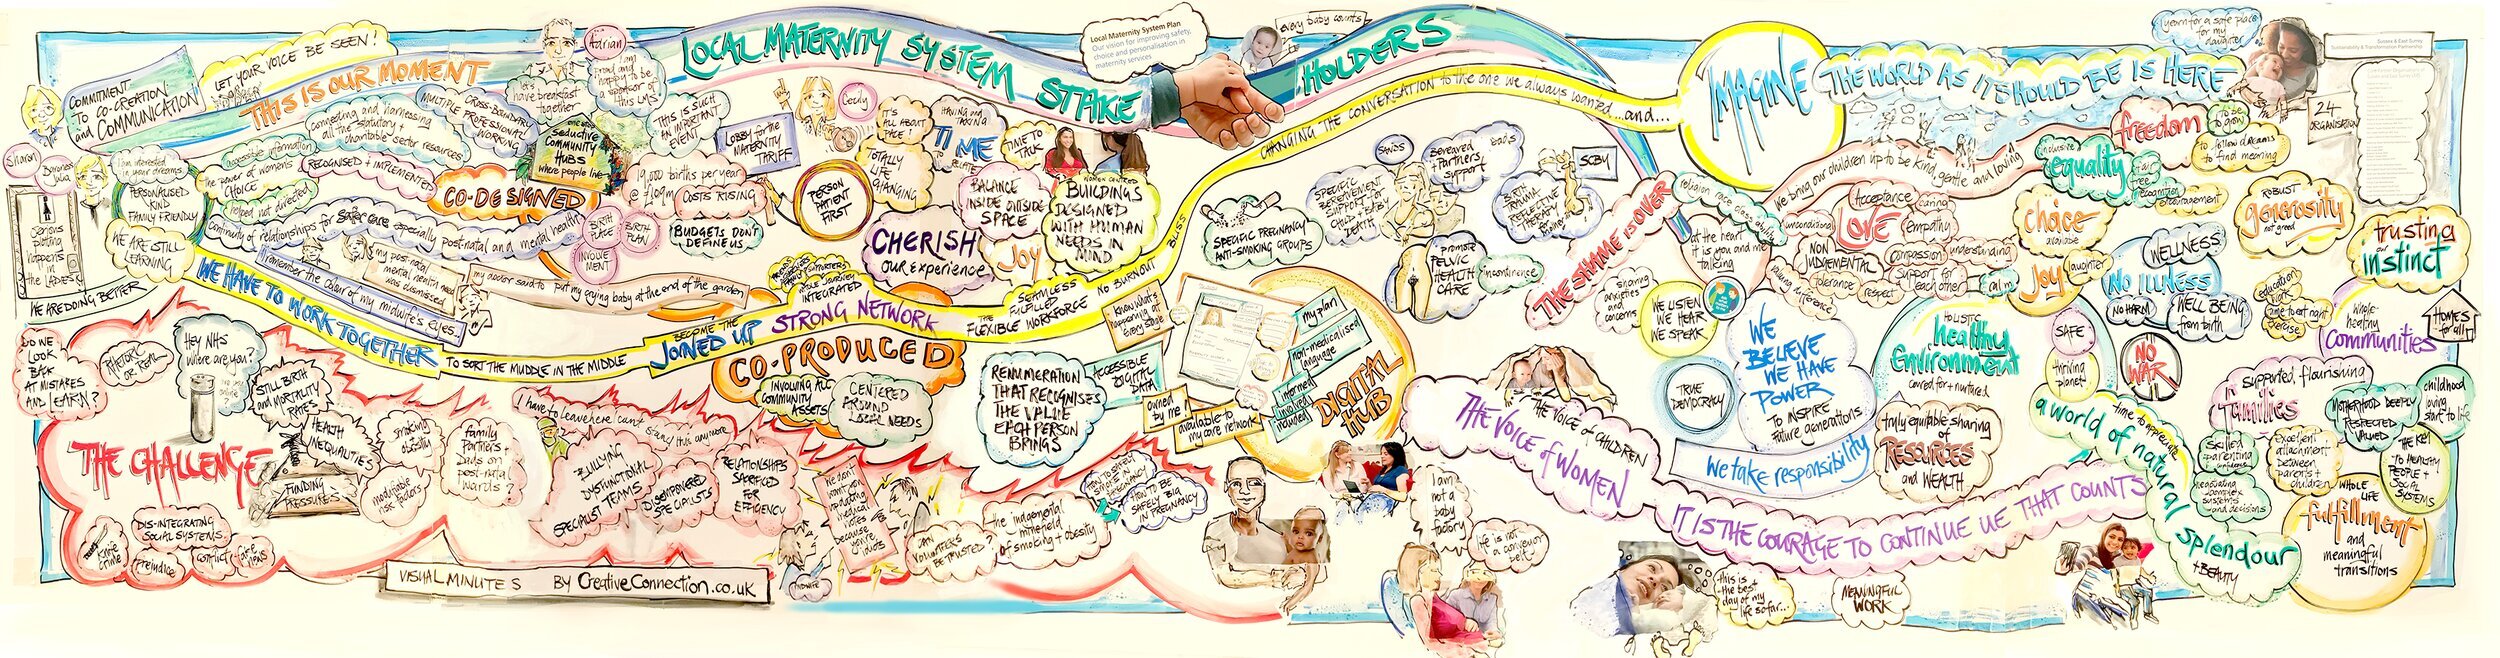 LET YOUR VOICE BE SEEN!
COMMITMENT
TO CO-CREATION
and COMMUNICATION
THIS IS OUR MOMENT
Sharon
Baroness
Julia
Serious
plotting
happens
in
the LADIES
WE ARE DOING BETTER
I am interested
in your dreams
PERSONALISED
KIND
FAMILY FRIENDLY
WE ARE STILL
LEARNING
accessible information
the power of women's
CHOICE
helped not directed
connecting and harnessing
all the statutory +
charitable sector resources
RECOGNISED + IMPLEMENTED
MULTIPLE
PROFESSIONAL
CROSS-BOUNDARY
WORKING
CO-DESIGNED
Continuity of relationships for safer care especially post-natal and mental health
remember the colour of my midwife's eyes...
my post-natal
mental health need
was dismissed
my doctor said to put my crying baby at the end of the garden
let's
have breakfast
together
Adrian
I am
proud and
happy to be
a sponsor of
this LMS
Seductive
COMMUNITY
HUBS
where people live
THIS IS SUCH
AN IMPORTANT
EVENT
19,000 births per year
COSTS RISING
BIRTH
PLACE
BIRTH
PLAN
INVOLVE
MENT
BUDGETS DON'T
DEFINE US
LOBBY for the
MATERNITY
TARIFF
PERSON
PATIENT
FIRST
Cecily
LOCAL MATERNITY SYSTEM STAKE HOLDERS
Local Maternity System Plan
Our vision for improving safety,
choice and personalisation in
maternity services
every baby counts
IT'S
ALL ABOUT
PACE!
TOTALLY
LIFE
CHANGING
HAVING and
TAKING
TIME
TO RELATE
TIME TO
TALK
BALANCE
INSIDE OUTSIDE
SPACE
CHERISH
OUR EXPERIENCE
Joy
WOMEN CENTRED
BUILDINGS
DESIGNED
WITH HUMAN
NEEDS IN
MIND
WE HAVE TO WORK TOGETHER
TO SORT THE MIDDLE IN THE MIDDLE
BECOME THE
JOINED UP STRONG NETWORK
WHOLE JOURNEY
INTEGRATED
SEAMLESS
FULFILLED
THE FLEXIBLE WORKFORCE
NO BURNOUT
BLISS
CHANGING THE CONVERSATION to the one we always wanted...and...
CO-PRODUCED
INVOLVING ALL
COMMUNITY
ASSETS
CENTERED
AROUND
LOCAL NEEDS
RENUMERATION
THAT RECOGNISES
THE VALUE
EACH PERSON
BRINGS
ACCESSIBLE
DIGITAL
DATA
Know what's
happening at
every stage
my plan
non-medicalised
language
informed
involved
included
owned
by me
available to
my care network
DIGITAL
HUB
SPECIFIC PREGNANCY
ANTI-SMOKING GROUPS
SANDS
SPECIFIC
BEREAVEMENT
SUPPORT OF
CHILD + BABY
DEATH
Bereaved
Partners
support
Dads
promote
PELVIC
HEALTH
CARE
Incontinence
BIRTH
TRAUMA
REFLECTIVE
THERAPY
SCBU
THE SHAME IS OVER
sharing
anxieties
and
concerns
WE LISTEN
WE HEAR
WE SPEAK
DO WE
LOOK
BACK
AT MISTAKES
AND LEARN?
RHETORIC
OR REAL
HEY NHS
where are you?
STILL BIRTH
and MORTALITY
RATES
HEALTH
INEQUALITIES
FUNDING
PRESSURES
THE CHALLENGE
smoking
obesity
modifiable
risk factors
family
Partners +
Dads on
post-natal
wards?
DIS-INTEGRATING
SOCIAL SYSTEMS
Knife
crime
Prejudice
conflict
fake
news
I have to leave here can't stand this anymore
BULLYING
DYSFUNCTIONAL
TEAMS
SPECIALIST
DISEMPOWERED
SPECIALISTS
RELATIONSHIPS
SACRIFICED
FOR
EFFICIENCY
We don't
want you
updating
medical
notes
because
you're
idiots
MIDWIFE
CAN
VOLUNTEERS
BE TRUSTED?
the judgemental
minefield
of smoking + obesity
HOW TO BE
SAFELY BIG
IN PREGNANCY
VISUAL MINUTES BY CreativeConnection.co.uk
IMAGINE
THE WORLD AS IT SHOULD BE IS HERE
I yearn for a safe place
for my
daughter
Sussex & East Surrey
Sustainability & Transformation Partnership
24
ORGANISATIONS
We bring our children up to be kind, gentle and loving
freedom
to be
to grow
to follow dreams
to find meaning
religion race class ability
inclusive
equality
fair
free
recognition
encouragement
at the heart
it is you and me
talking
Acceptance
caring
unconditional
LOVE
empathy
NON
JUDGEMENTAL
compassion
understanding
tolerance
respect
Support for
each other
valuing difference
calm
choice
available
Joy
laughter
WELLNESS
NO ILLNESS
NO HARM
WELL BEING
from birth
ROBUST
generosity
not greed
trusting
our
instinct
education
Park
time to eat right
exercise
whole
healthy
Communities
HOMES
for all
WE
BELIEVE
WE HAVE
POWER
TO INSPIRE
Future generations
TRUE
DEMOCRACY
We take responsibility
HOLISTIC
healthy
Environment
cared for + nurtured
SAFE
thriving
planet
NO
WAR
truly equitable sharing
of
RESOURCES
and WEALTH
time to appreciate
a world of natural splendour
+ BEAUTY
Supported, flourishing
Families
Skilled
parenting
confidence
negotiating
complex
systems
and decisions
Excellent
attachment
between
parents +
children
MOTHERHOOD DEEPLY
RESPECTED
VALUED
childhood
loving
start to life
THE KEY
TO HEALTHY
PEOPLE +
SOCIAL
SYSTEMS
WHOLE
LIFE
fulfillment
and
meaningful
transitions
THE VOICE OF CHILDREN
THE VOICE of WOMEN
IT IS THE COURAGE TO CONTINUE UE THAT COUNTS
I am
not a
baby
factory
life is not
a conveyor
belt
this is
the best
day of my
life so far...
MEANINGFUL
WORK